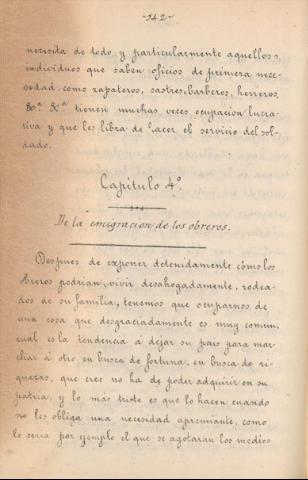 -342-
necesita de todo y particularmente aquellos
individuos que saben oficios de primera nece-
sidad como zapateros, sastres, barberos, herreros,
&ª &ª tienen muchas veces ocupación lucra-
tiva y que les libra de hacer el servicio del sol-
dado.
Capítulo 4º
De la emigracion de los obreros.
Despues de exponer detenidamente cómo los
obreros podrian vivir desahogadamente, rodea-
dos de su familia, tenemos que ocuparnos de
una cosa que desgraciadamente es muy comun,
cual es la tendencia á dejar su pais para mar-
char á otro en busca de fortuna, en busca de ri-
quezas, que cree no ha de poder adquirir en su
patria, y lo mas triste es que lo hacen cuando
no les obliga una necesidad apremiante, como
lo seria por ejemplo el que se agotaran los medios